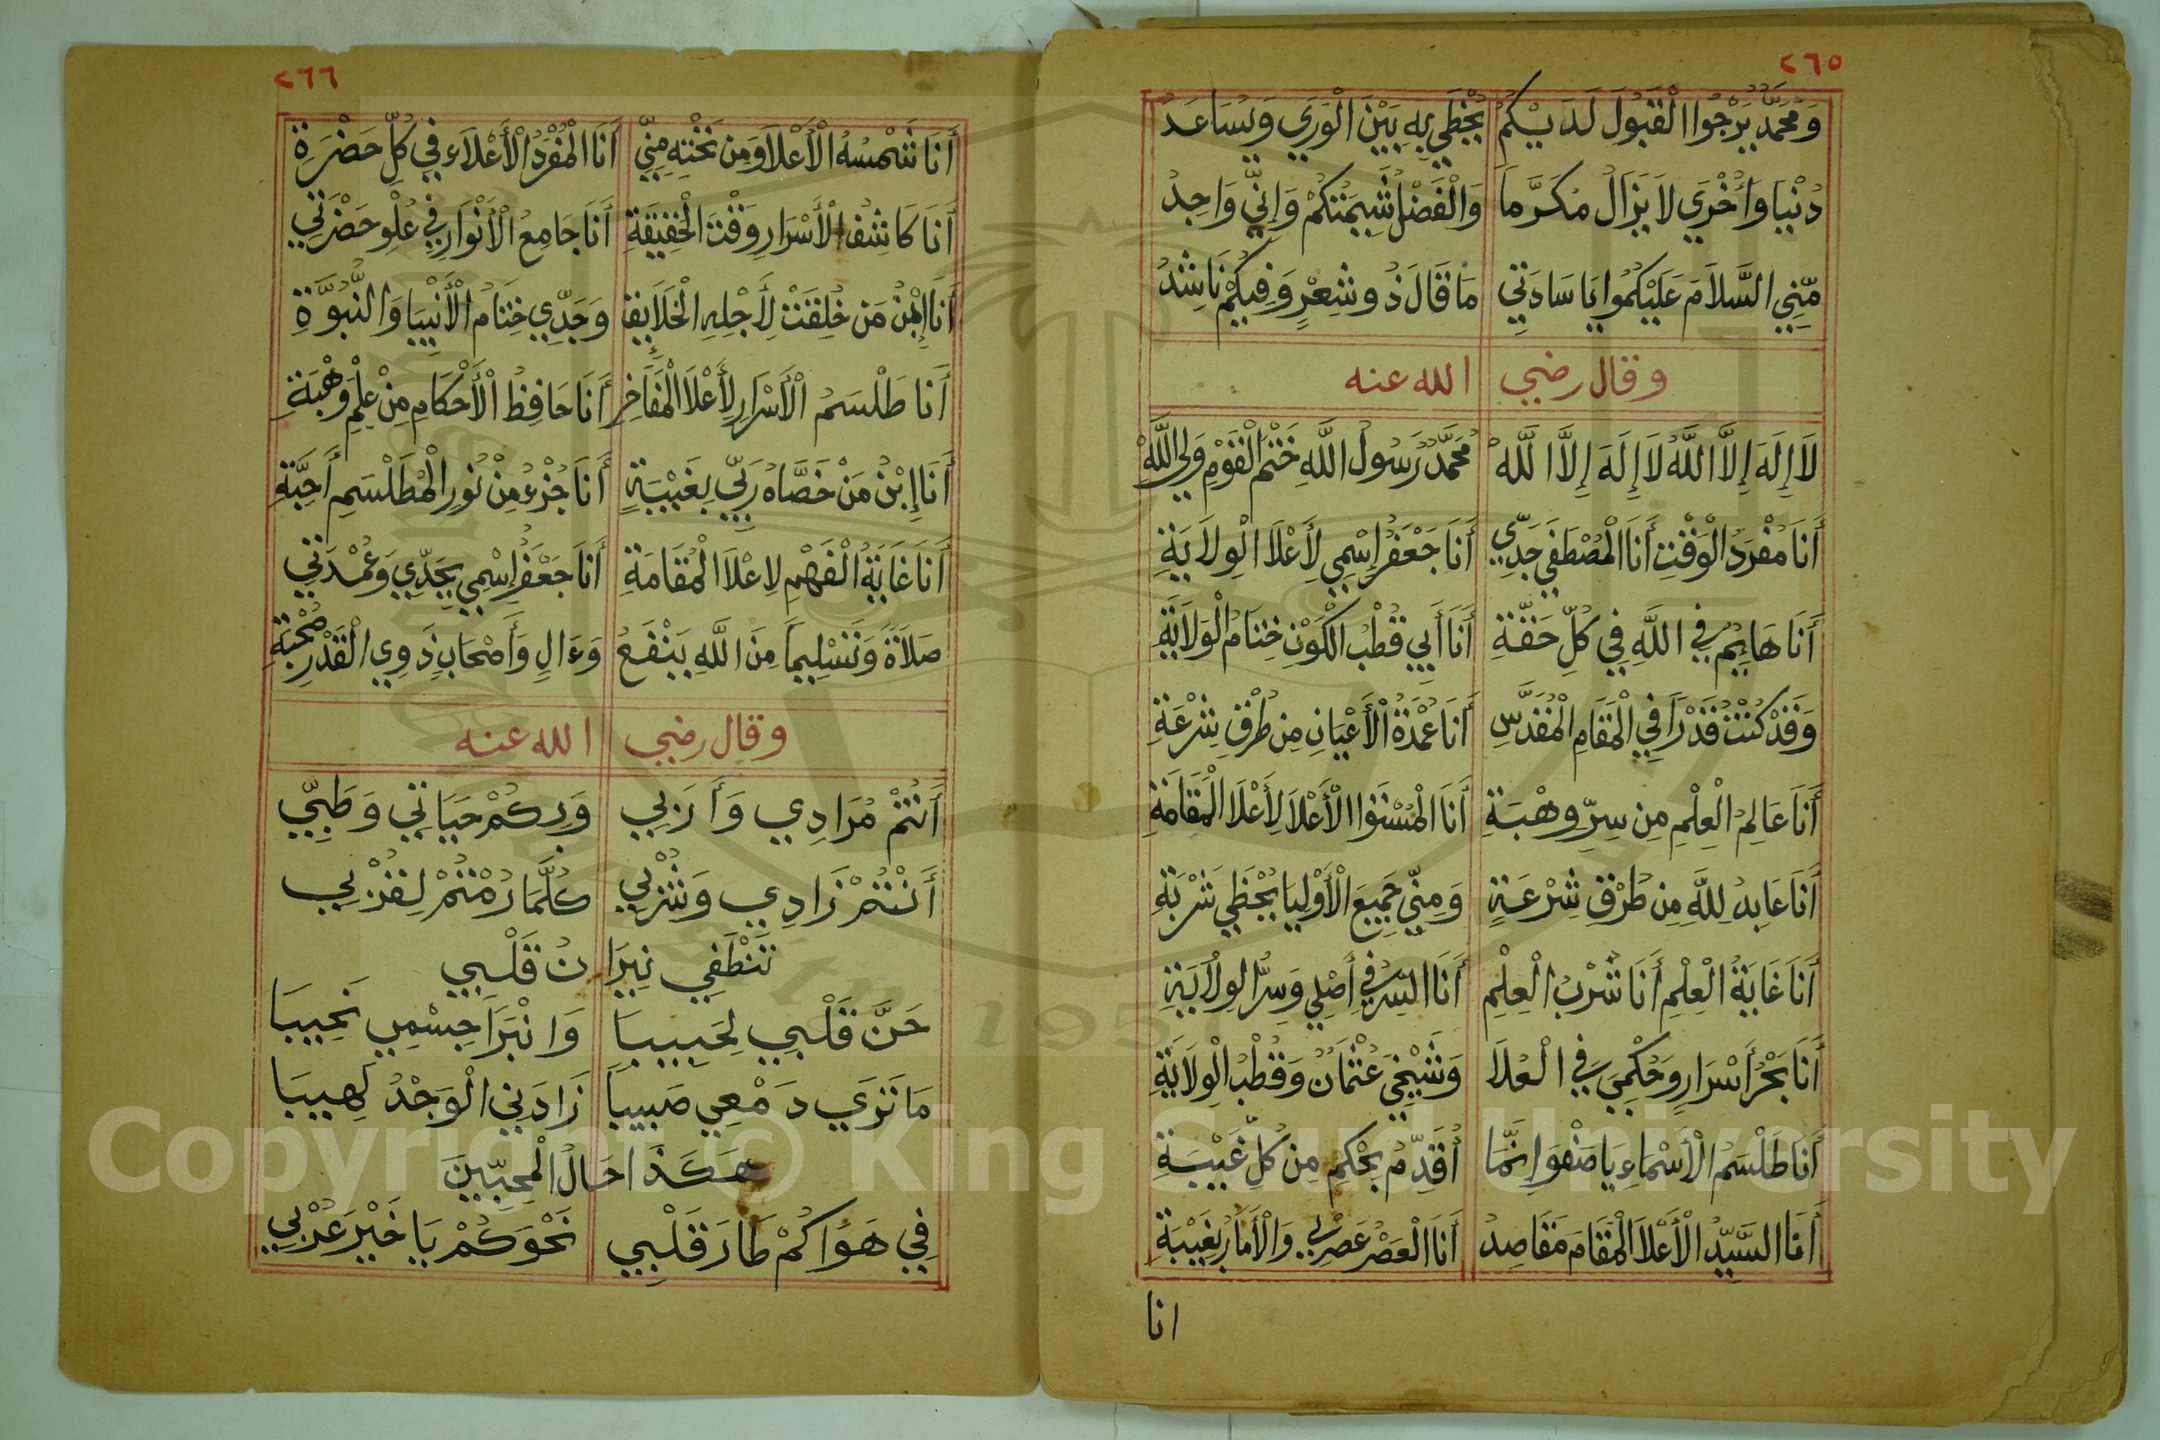 ٢٦٥
وَمُحَمَّدٌ يَرْجُوا الْقَبُولَ لَدَيْكُمْ يُحْظَي بِهِ بَيْنَ الْوَرَي وَيُسَاعَدُ
دُنْيَا وَأُخْرَي لاَ يَزَالُ مُكَرَّمًا وَالْفَضْلُ شِيمَتُكُمْ وَإِنِّي وَاجِدُ
مِّنِي السَّلاَمَ عَلَيْكُمُوا يَا سَادَتِي مَا قَالَ ذُو شِعْرٍ وَفِيكُمْ نَاشِدُ
وقال رضي الله عنه
لاَ إِلَهَ إِلاَّ اللَّهُ لاَ إِلَهَ إِلاَّ اللَّهُ مُحَمَّدٌ رَسُولُ اللَّهِ خَتْمُ الْقَوْمِ وَلِي اللَّهِ
أَنَا مُفْرَدُ الْوَقْتِ أَنَا الْمُصْطَفَي جَدِّي أَنَا جَعْفَرُ إِسْمِي لِأَعْلاَ الْوِلاَيَةِ
أَنَا هَايِمٌ فِي اللَّهِ فِي كُلِّ حَقَّةِ أَنَا أَبِي قُطْبُ الْكَوْنِ خِتَامُ الْوَلاَيَةِ
وَقَدْ كُنْتُ قَدْرًا فِي الْمَقَامِ الْمُقَدَّسِ أَنَا عُمْدَةُ الْأَعْيَانِ مِن طُرْقِ شِرْعَةِ
أَنَا عَالِمُ الْعِلْمِ مِن سِرِّ وهْبَةِ أَنَا الْمُسْتَوَا الْأَعْلاَ لِأَعْلاَ الْمَقَامَةِ
أَنَا عَابِدُ لِلَّهِ مِن طُرْقِ شِرْعَةٍ وَمِنِّي جَمِيعَ الْأَوْلِيَا يُحْظَي شَرْبَةِ
أَنَا غَايَةُ الْعِلْمِ أَنَا شُرْبُ الْعِلْمِ أَنَا السِّرُ فِي أَصْلِي وَسِرُّ الوِلاَيَةِ
أَنَا بَحْرُ أَسْرَارٍ وَحُكْمِيَ فِي الْعُلاَ وَشَيْخِيَ عُثْمَانُ وَقُطْبُ الْوِلاَيَةِ
أَنَا طَلْسَمُ الْأَسْمَاءِ يَا صَفْوَ إِنَّمَا أُقَدِّمُ بِحُكْمٍ مِن كُلِّ غَيْبَةِ
أَنَا السَّيِّدُ الْأَعْلاَ الْمَقَامَ مَقَاصِدُ أَنَا الْعَصْرُ عَصْرِي وَالْأَمَارُ بِغَيْبَةِ
انا
٢٦٦
أَنَا شَمْسُهُ الْأَعْلاَ وَمِن تَحْتِهِ مِنِّي أَنَا الْمُفْرَدُ الْأَعْلاَءِ فِي كُلِّ حَضْرَةِ
أَنَا كَاشِفُ الْأَسْرَارِ وَقْتَ الْحَقِيقَةِ أَنَا جَامِعُ الْأَنْوَارِ فِي عُلْوِ حَضْرَتِي
أَنَا إِبْنُ مَن خُلِقَتْ لِأَجْلِهِ الْخَلاَيِقُ وَجَدِّي خِتَامُ الْأَنْبِيَا وَالنُّبُوَّةِ
أَنَا طَلْسَمُ الْأَسْرَارِ لِأَعْلاَ الْمَفَاخِرِ أَنَا حَافِظُ الْأَحْكَامِ مِنْ عِلْمِ وَهْبَةِ
أَنَا إِبْنُ مَنْ خَصَّاهُ رَبِّي بِغَيْبَةٍ أَنَا جُزْءٌ مِنْ نُورِ الْمُطَلْسَمِ أَحِبَّةِ
أَنَا غَايَةُ الْفَهْمِ لاِعْلاَ الْمُقَامَةِ أَنَا جَعْفَرُ إِسْمِي بِجَدِّي وَعُمْدَتِي
صَلاَةً وَتَسْلِيمًا مِنَ اللَّهِ يَنْفَعُ وَءَالٍ وَأَصْحَابٍ ذَوِي الْقَدْرِ صُحْبَةِ
وقال رضي الله عنه
أَنْتُمْ مُرَادِي وَأَرَبِي وَبِكُمْ حَيَاتِي وَطَبِّي
أَنْتُمْ زَادِي وَشُرْبِي كُلَّمَا رُمْتُمْ لِقُرْبِي
تَنْطَفِي نِيرَانُ قَلْبِي
حَنَّ قَلْبِي لِحَبِيبَا وَانْبَرَا جِسْمِي نَحِيبَا
مَا تَرَي دَمْعِي صَبِيبًا زَادَنِي الْوَجْدُ لَهِيبَا
هَكَذَا حَالُ الْمُحِبِّينَ
فِي هَوَاكُمْ طَارَ قَلْبِي نَحْوَكُمْ يَا خَيْرَ عُرْبِي
Copyright © King Saud University